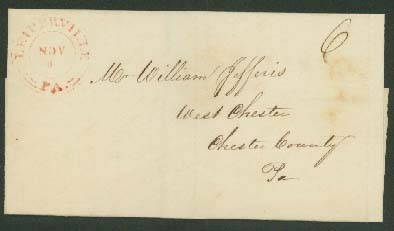 LEIPERVILLE
NOV
PA.
6
Mr William Jefferis
West Chester
Chester County
Pa